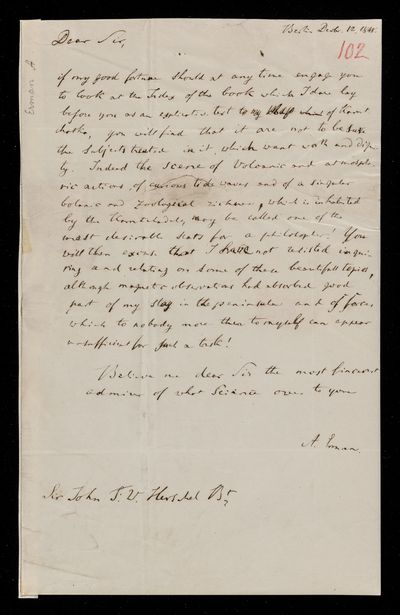 Berlin Decbr. 12, 1848.
102
Dear Sir,
Erman A
if my good fortune should at any time engage you
to look at the Index of the book which I dare lay
before you as an explicative text to my of Kamt
chatka, you will find that it are not to be sure
the subjects treated in it which want worth and digni
ty. Indeed the scene of Volcanic and atmosphe
ric actions, of curious tide waves and of a singular
botanic and Zoological richness, which is inhabited
by the Kamtchadals, may be called one of the
most desirable seats for a philosopher! You
will then excuse that I have not resisted inqui
ring and relating on some of these beautiful topics,
although magnetic observations had absorbed good
part of my stay in the peninsula and of forces,
which to nobody more than to myself can appear
unsufficient for such a task!
Believe me dear Sir the most sincerest
admirer of what Science owes to you
A. Erman.
Sir John F. W. Herschel Bt